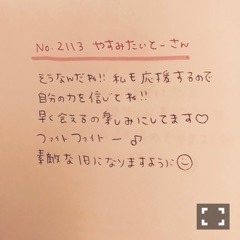 No.2113 やすみたいとーさん
そうなんだね!! 私も応援するので
自分の力を信じてね!!
早く会えるの楽しみにしてます♡
ファイトファイトー♪
素敵な1日になりますように☺